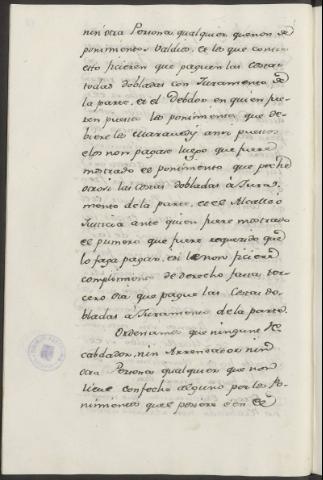 nin otra Persona qualquier que non dé
ponimientos Valdios, è los que contra
esto ficieren que paguen las costas
todas dobladas con Juramento de
la parte, è si el Debdor en quien fue-
ren puestos los ponimientos que de-
biere los maravedis anssi puestos
è los non pagare luego que fuere
mostrado el ponimiento que peche
otrosi las costas dobladas à Jura-
mento de la parte, è si el Alcalle ó
Justicia ante quien fuere mostrado
el primero que fuere requerido que
lo faga pagar, è si le non ficiere
complimiento de derecho fasta ter-
cero dia que pague las Costas do-
bladas à Juramento de la parte.
Ordenamos que ninguno Re-
cabdador, nin Arrendador nin
otra Persona qualquier que non
lieve confecho alguno por los Po-
nimientos que el posiere è en el